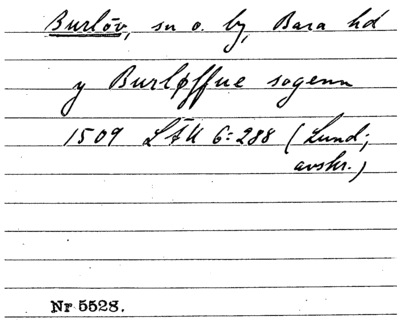 Burlöv, sn o. by, Bara hd
y Burløffue sogenn
1509 LÄU 6:288 (Lund;
avskr.)
Nr 5528.